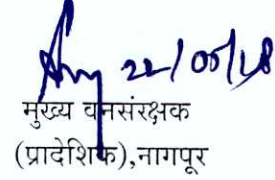 22/05/18
मुख्य वनसंरक्षक
(प्रादेशिक),नागपूर